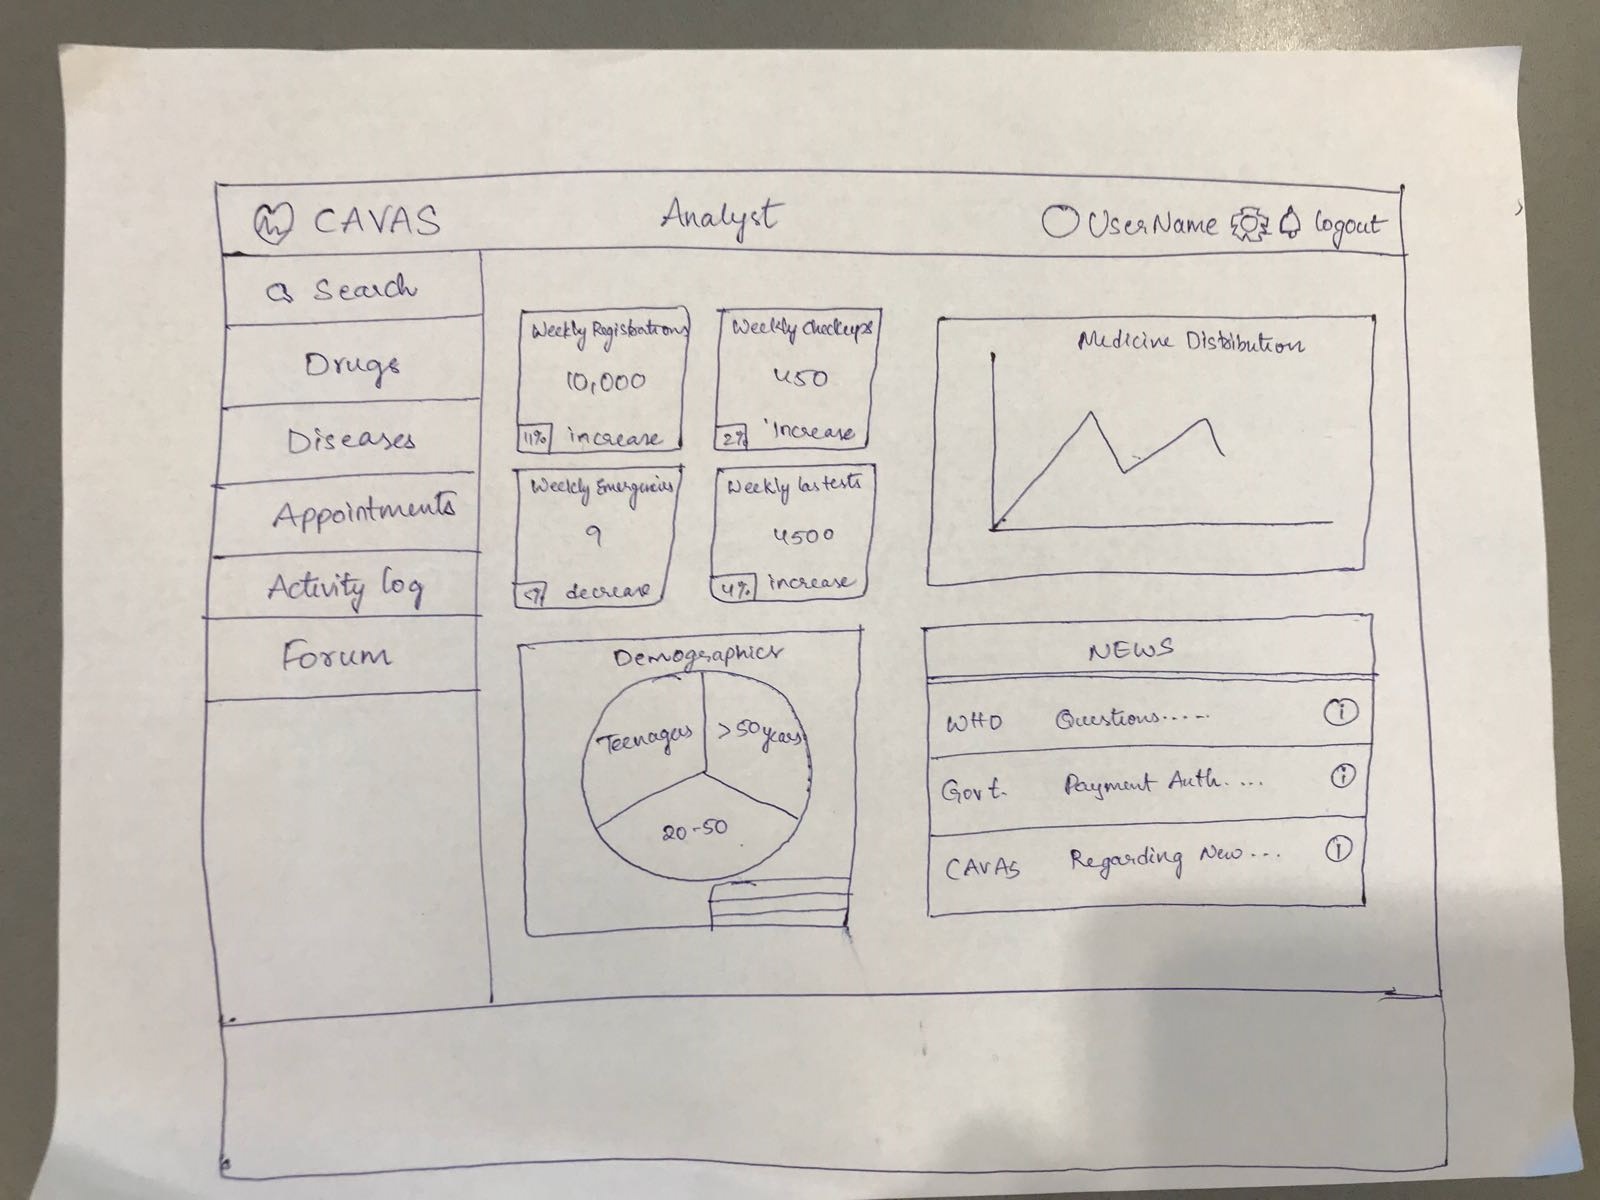 CAVAS Analyst UserName logout
Search
Drugs
Diseases
Appointments
Activity log
Forum
Weekly Registrations
10,000
11% increase
Weekly Checkups
450
2% increase
Weekly Emergencies
9
decrease
Weekly las tests
4500
4% increase
Medicine Distribution
Demographics
Teenagers
>50 years
20-50
NEWS
WHO Questions.....
Govt. Payment Auth. ...
CAVAS Regarding New ...